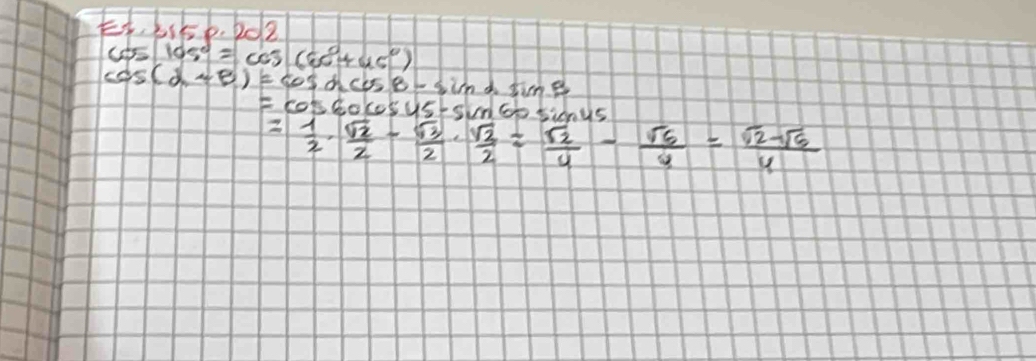 Es. 315 p. 202
cos 105° = cos (60° + 45°)
cos(α + β) = cos α cos β - sin α sin β
= cos 60 cos 45 - sin 60 sin 45
= 1/2 · √2/2 - √3/2 · √2/2 = √2/4 - √6/4 = √2-√6/4